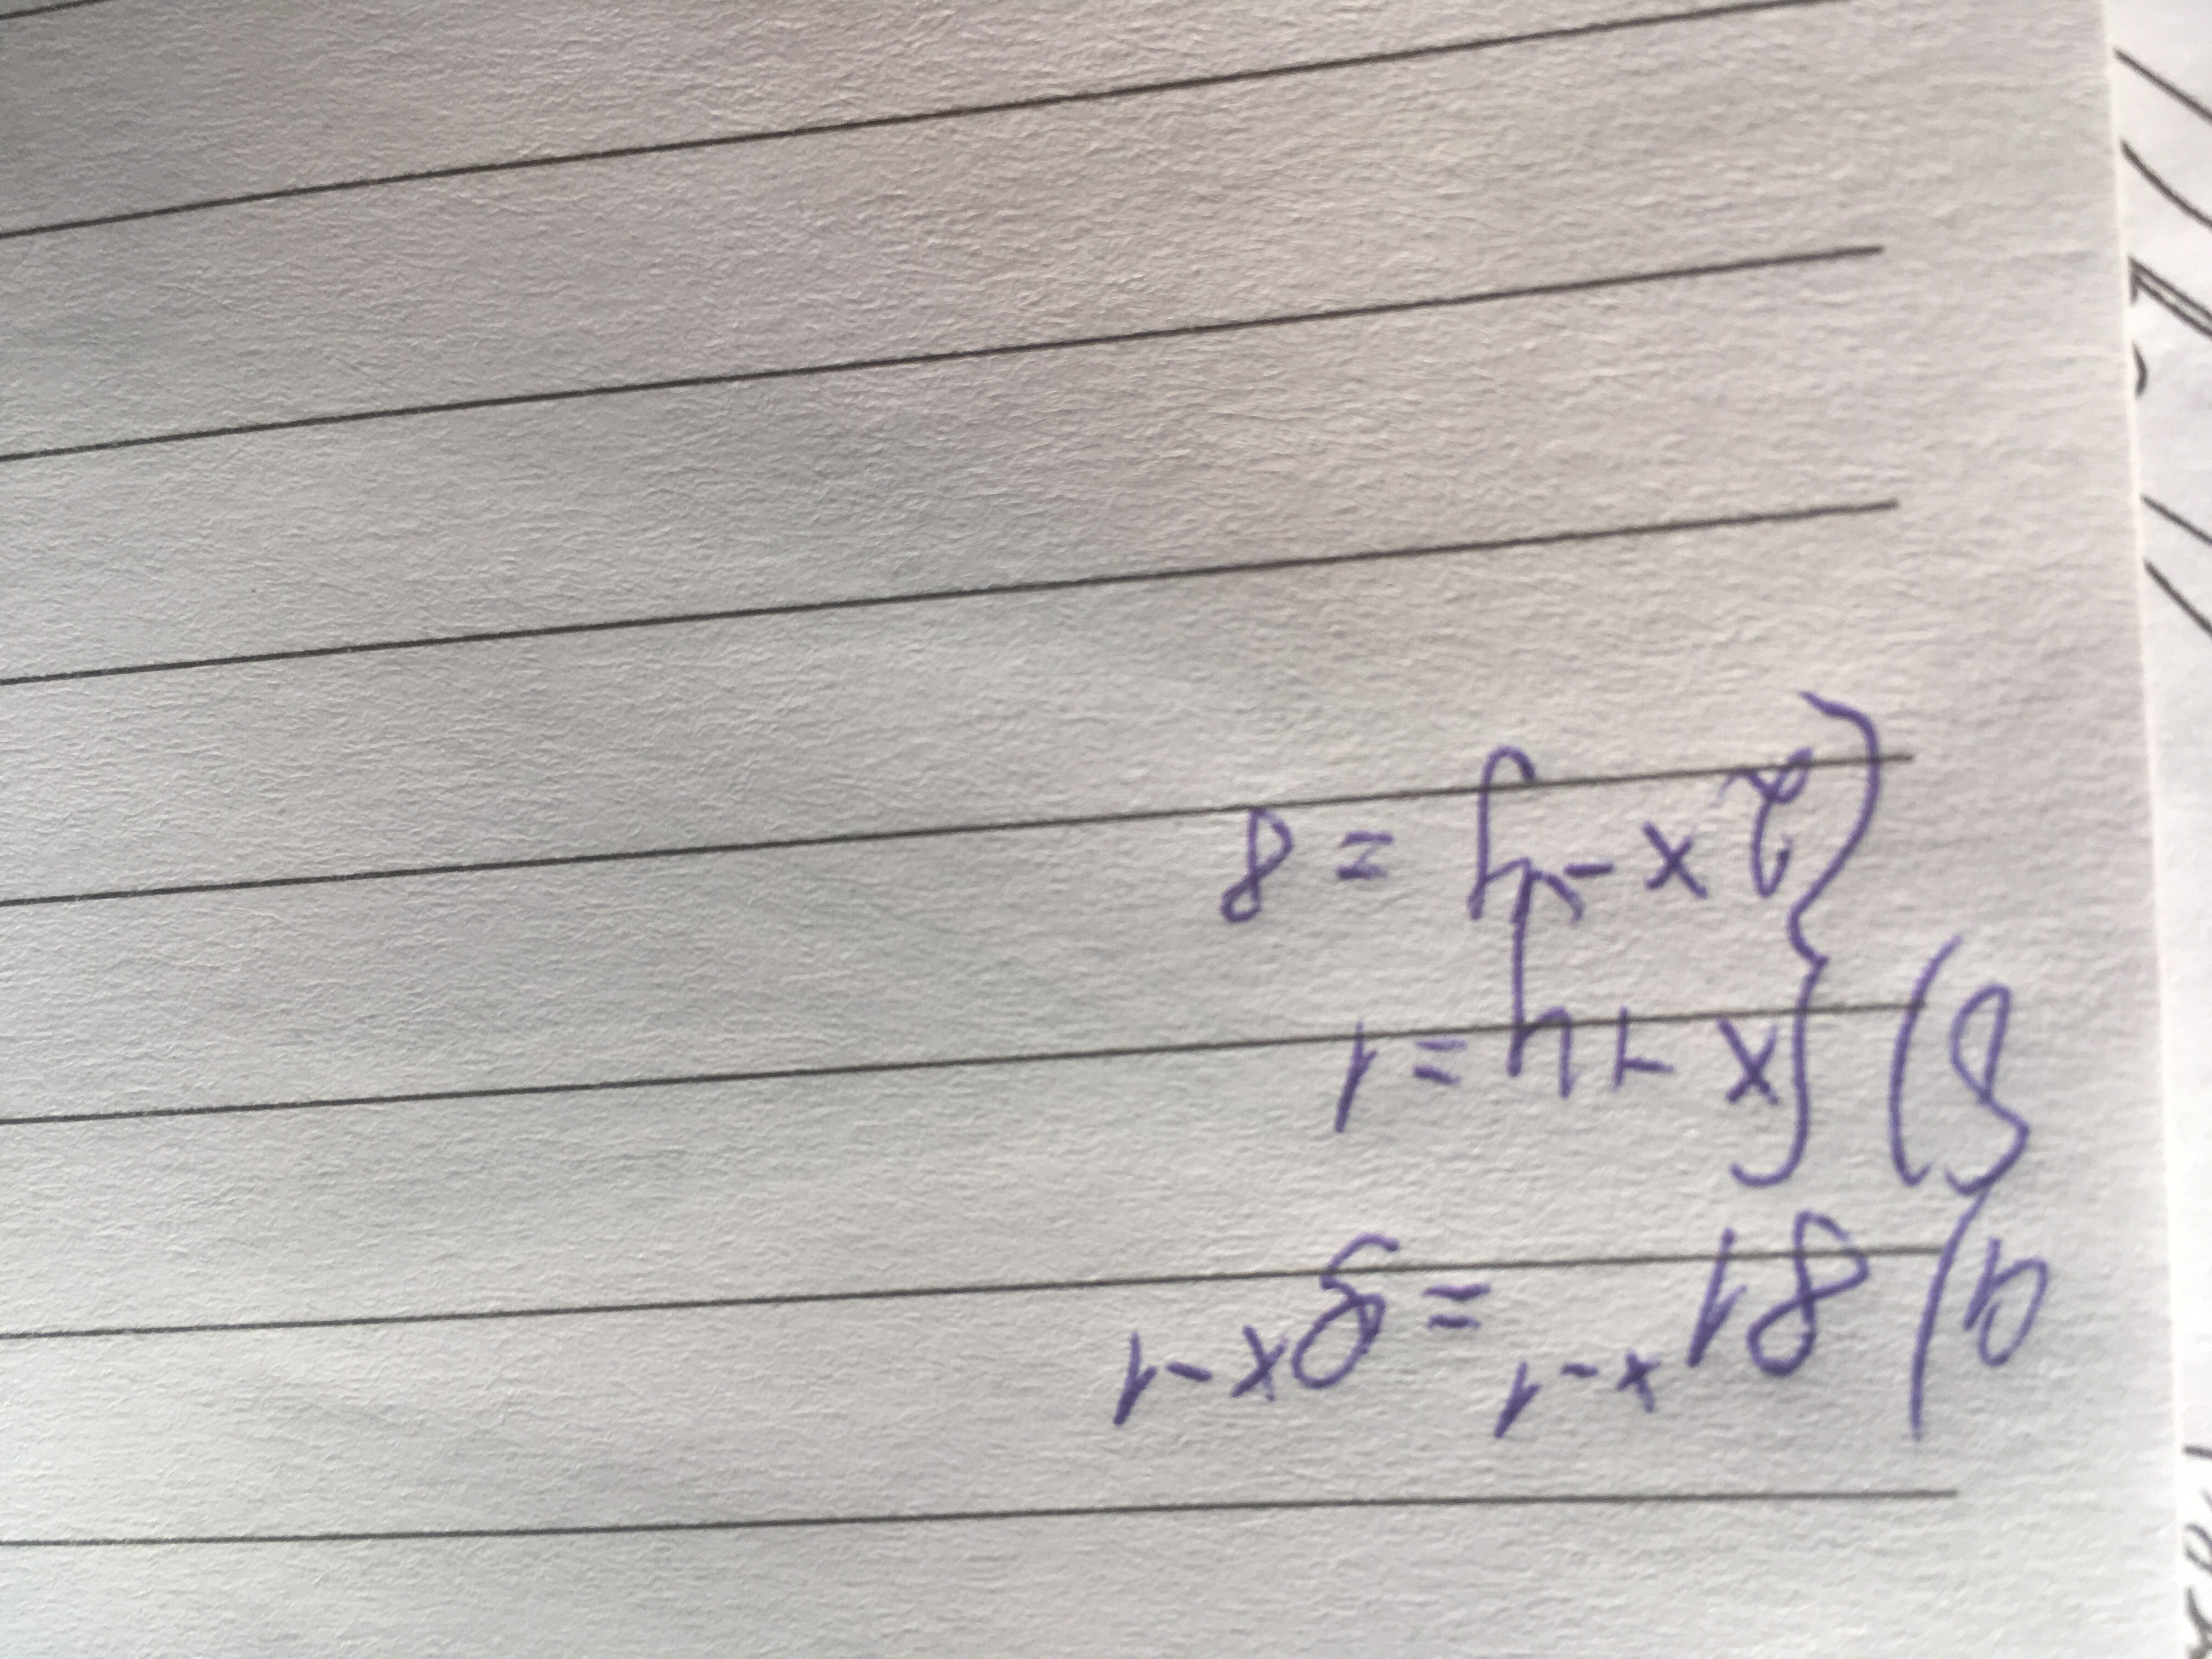 а) 81ˣ⁻¹ = 9ˣ⁻¹
б) { x + y = 1
2x - y = 8